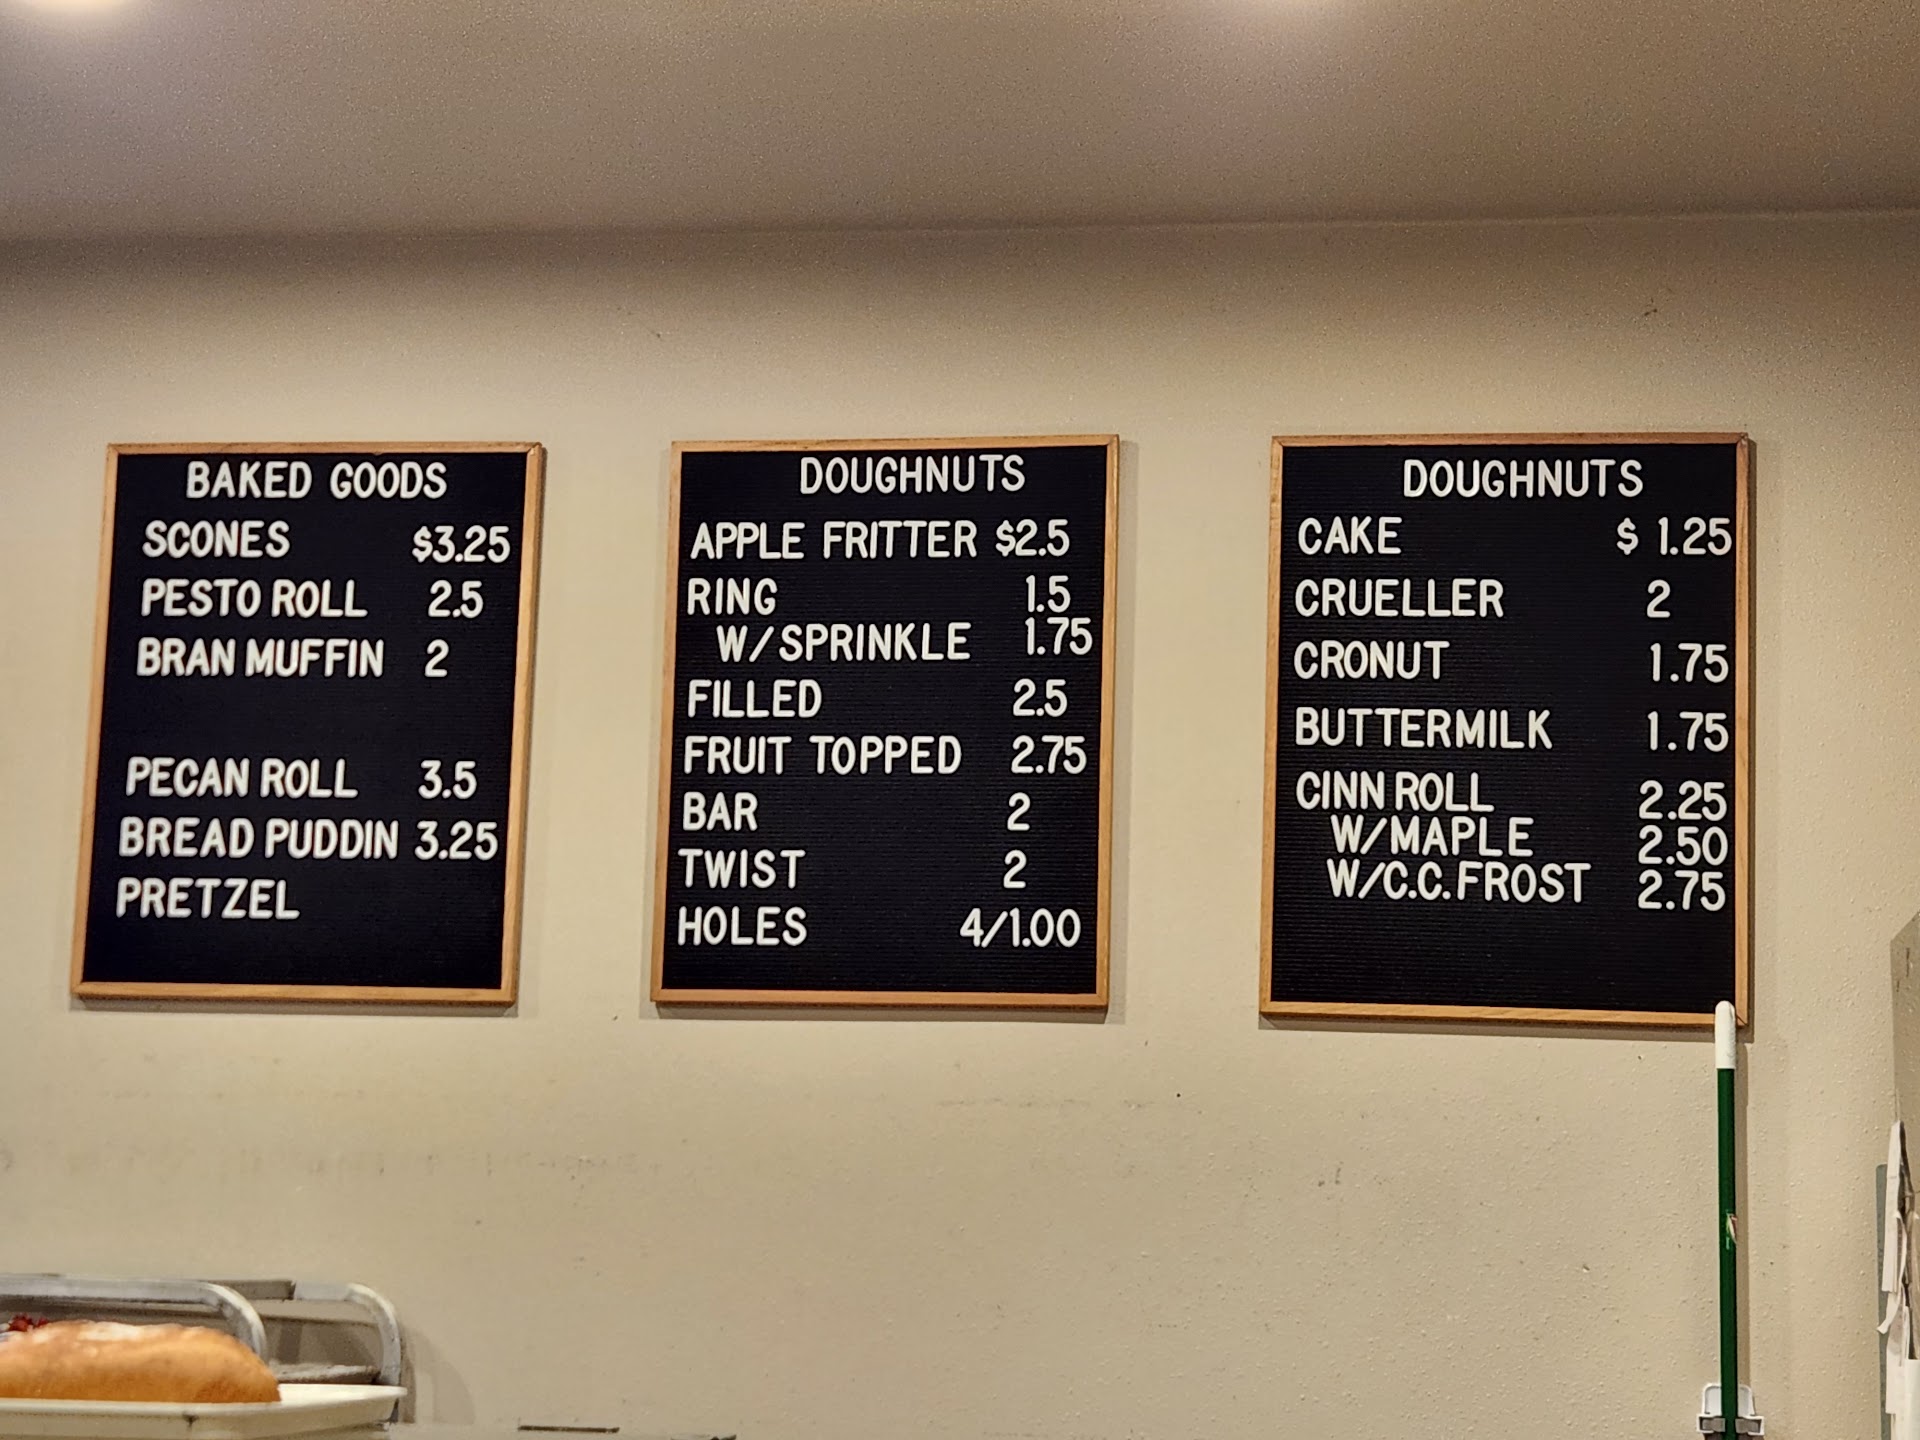 BAKED GOODS
SCONES $3.25
PESTO ROLL 2.5
BRAN MUFFIN 2
PECAN ROLL 3.5
BREAD PUDDIN 3.25
PRETZEL
DOUGHNUTS
APPLE FRITTER $2.5
RING 1.5
W/SPRINKLE 1.75
FILLED 2.5
FRUIT TOPPED 2.75
BAR 2
TWIST 2
HOLES 4/1.00
DOUGHNUTS
CAKE $ 1.25
CRUELLER 2
CRONUT 1.75
BUTTERMILK 1.75
CINN ROLL 2.25
W/MAPLE 2.50
W/C.C.FROST 2.75